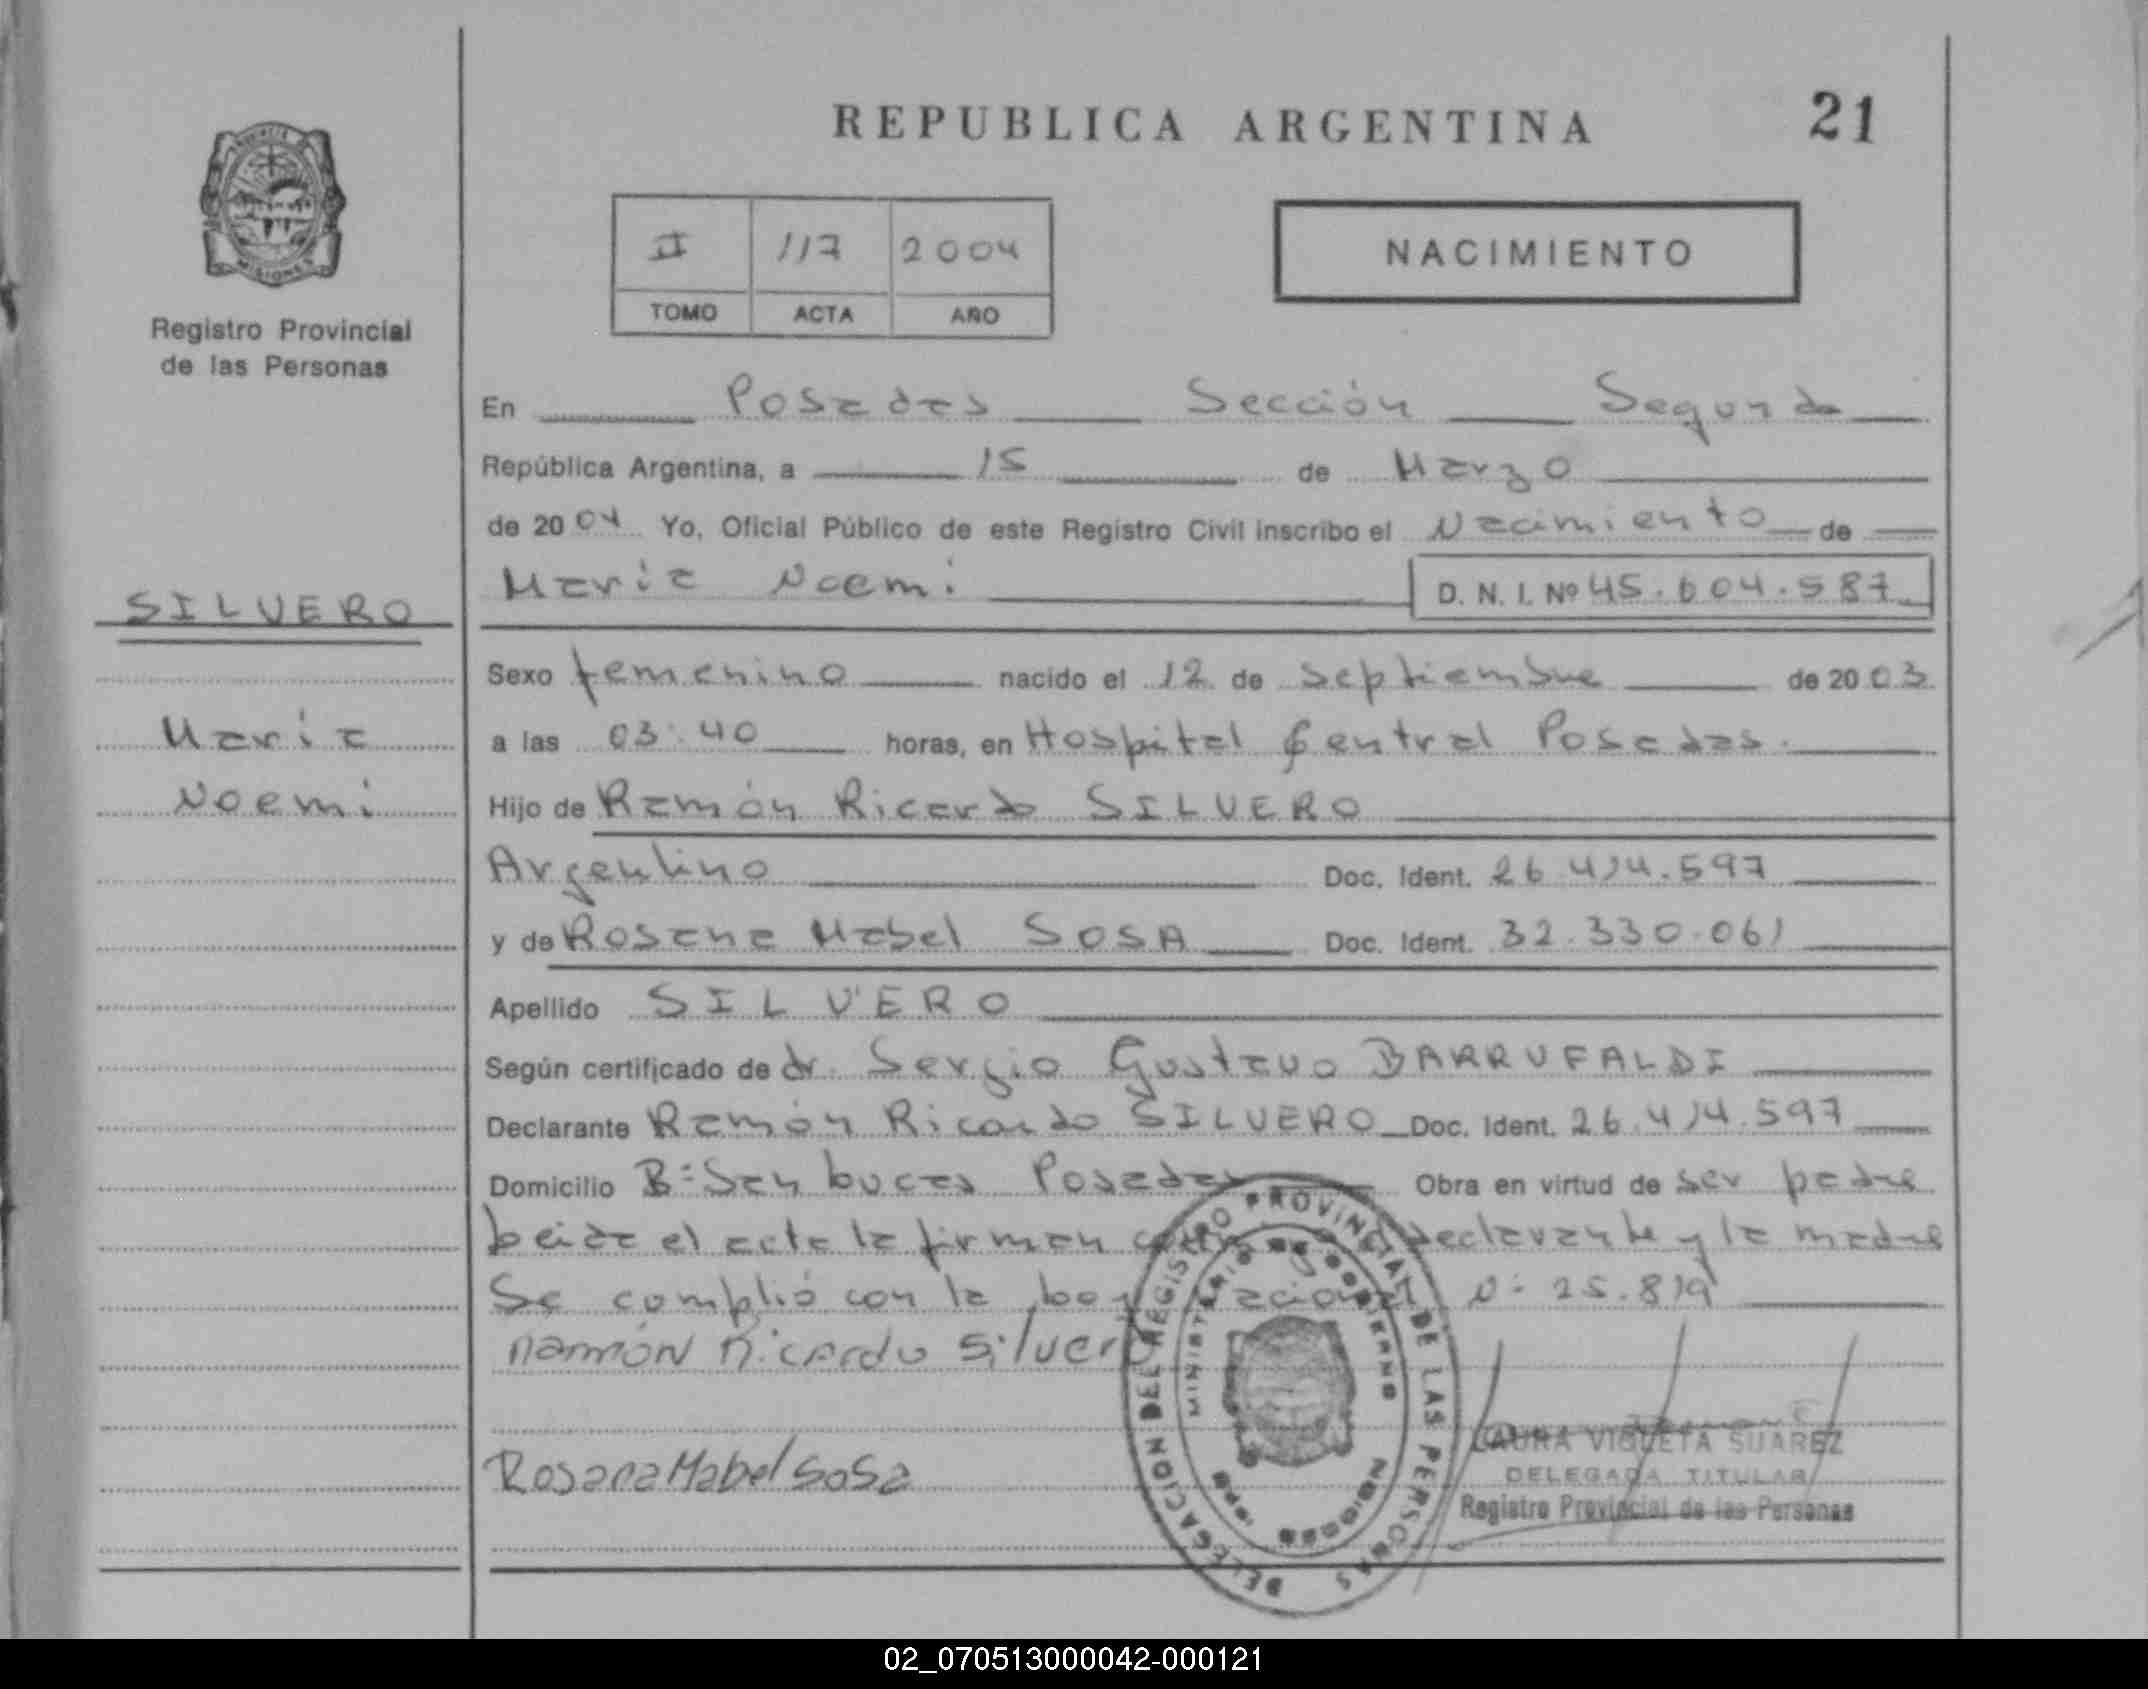 REPUBLICA ARGENTINA
21
MISIONES
Registro Provincial
de las Personas
II 117 2004
TOMO ACTA AÑO
NACIMIENTO
En Posadas Sección Segunda
República Argentina, a 15 de Marzo
de 2004 Yo, Oficial Público de este Registro Civil inscribo el Nacimiento de
Maria Noemi D. N. I. Nº 45.604.587
SILVERO
Maria
Noemi
Sexo femenino nacido el 12 de septiembre de 2003
a las 03:40 horas, en Hospital Central Posadas.
Hijo de Ramón Ricardo SILVERO
Argentino Doc. Ident. 26.414.597
y de Rosana Mabel SOSA Doc. Ident. 32.330.061
Apellido SILVERO
Según certificado de dr. Sergio Gustavo BARRUFALDI
Declarante Ramón Ricardo SILVERO Doc. Ident. 26.414.597
Domicilio Bº San Lucas Posadas Obra en virtud de ser padre
Leida el acta la firman declarante y la madre
Se complió con la Nº 25.819
Ramón Ricardo Silvero
Rosana Mabel Sosa
DELEGACION DEL REGISTRO PROVINCIAL DE LAS PERSONAS
MINISTERIO DE GOBIERNO
LAURA VIOLETA SUAREZ
DELEGADA TITULAR
Registro Provincial de las Personas
02_070513000042-000121